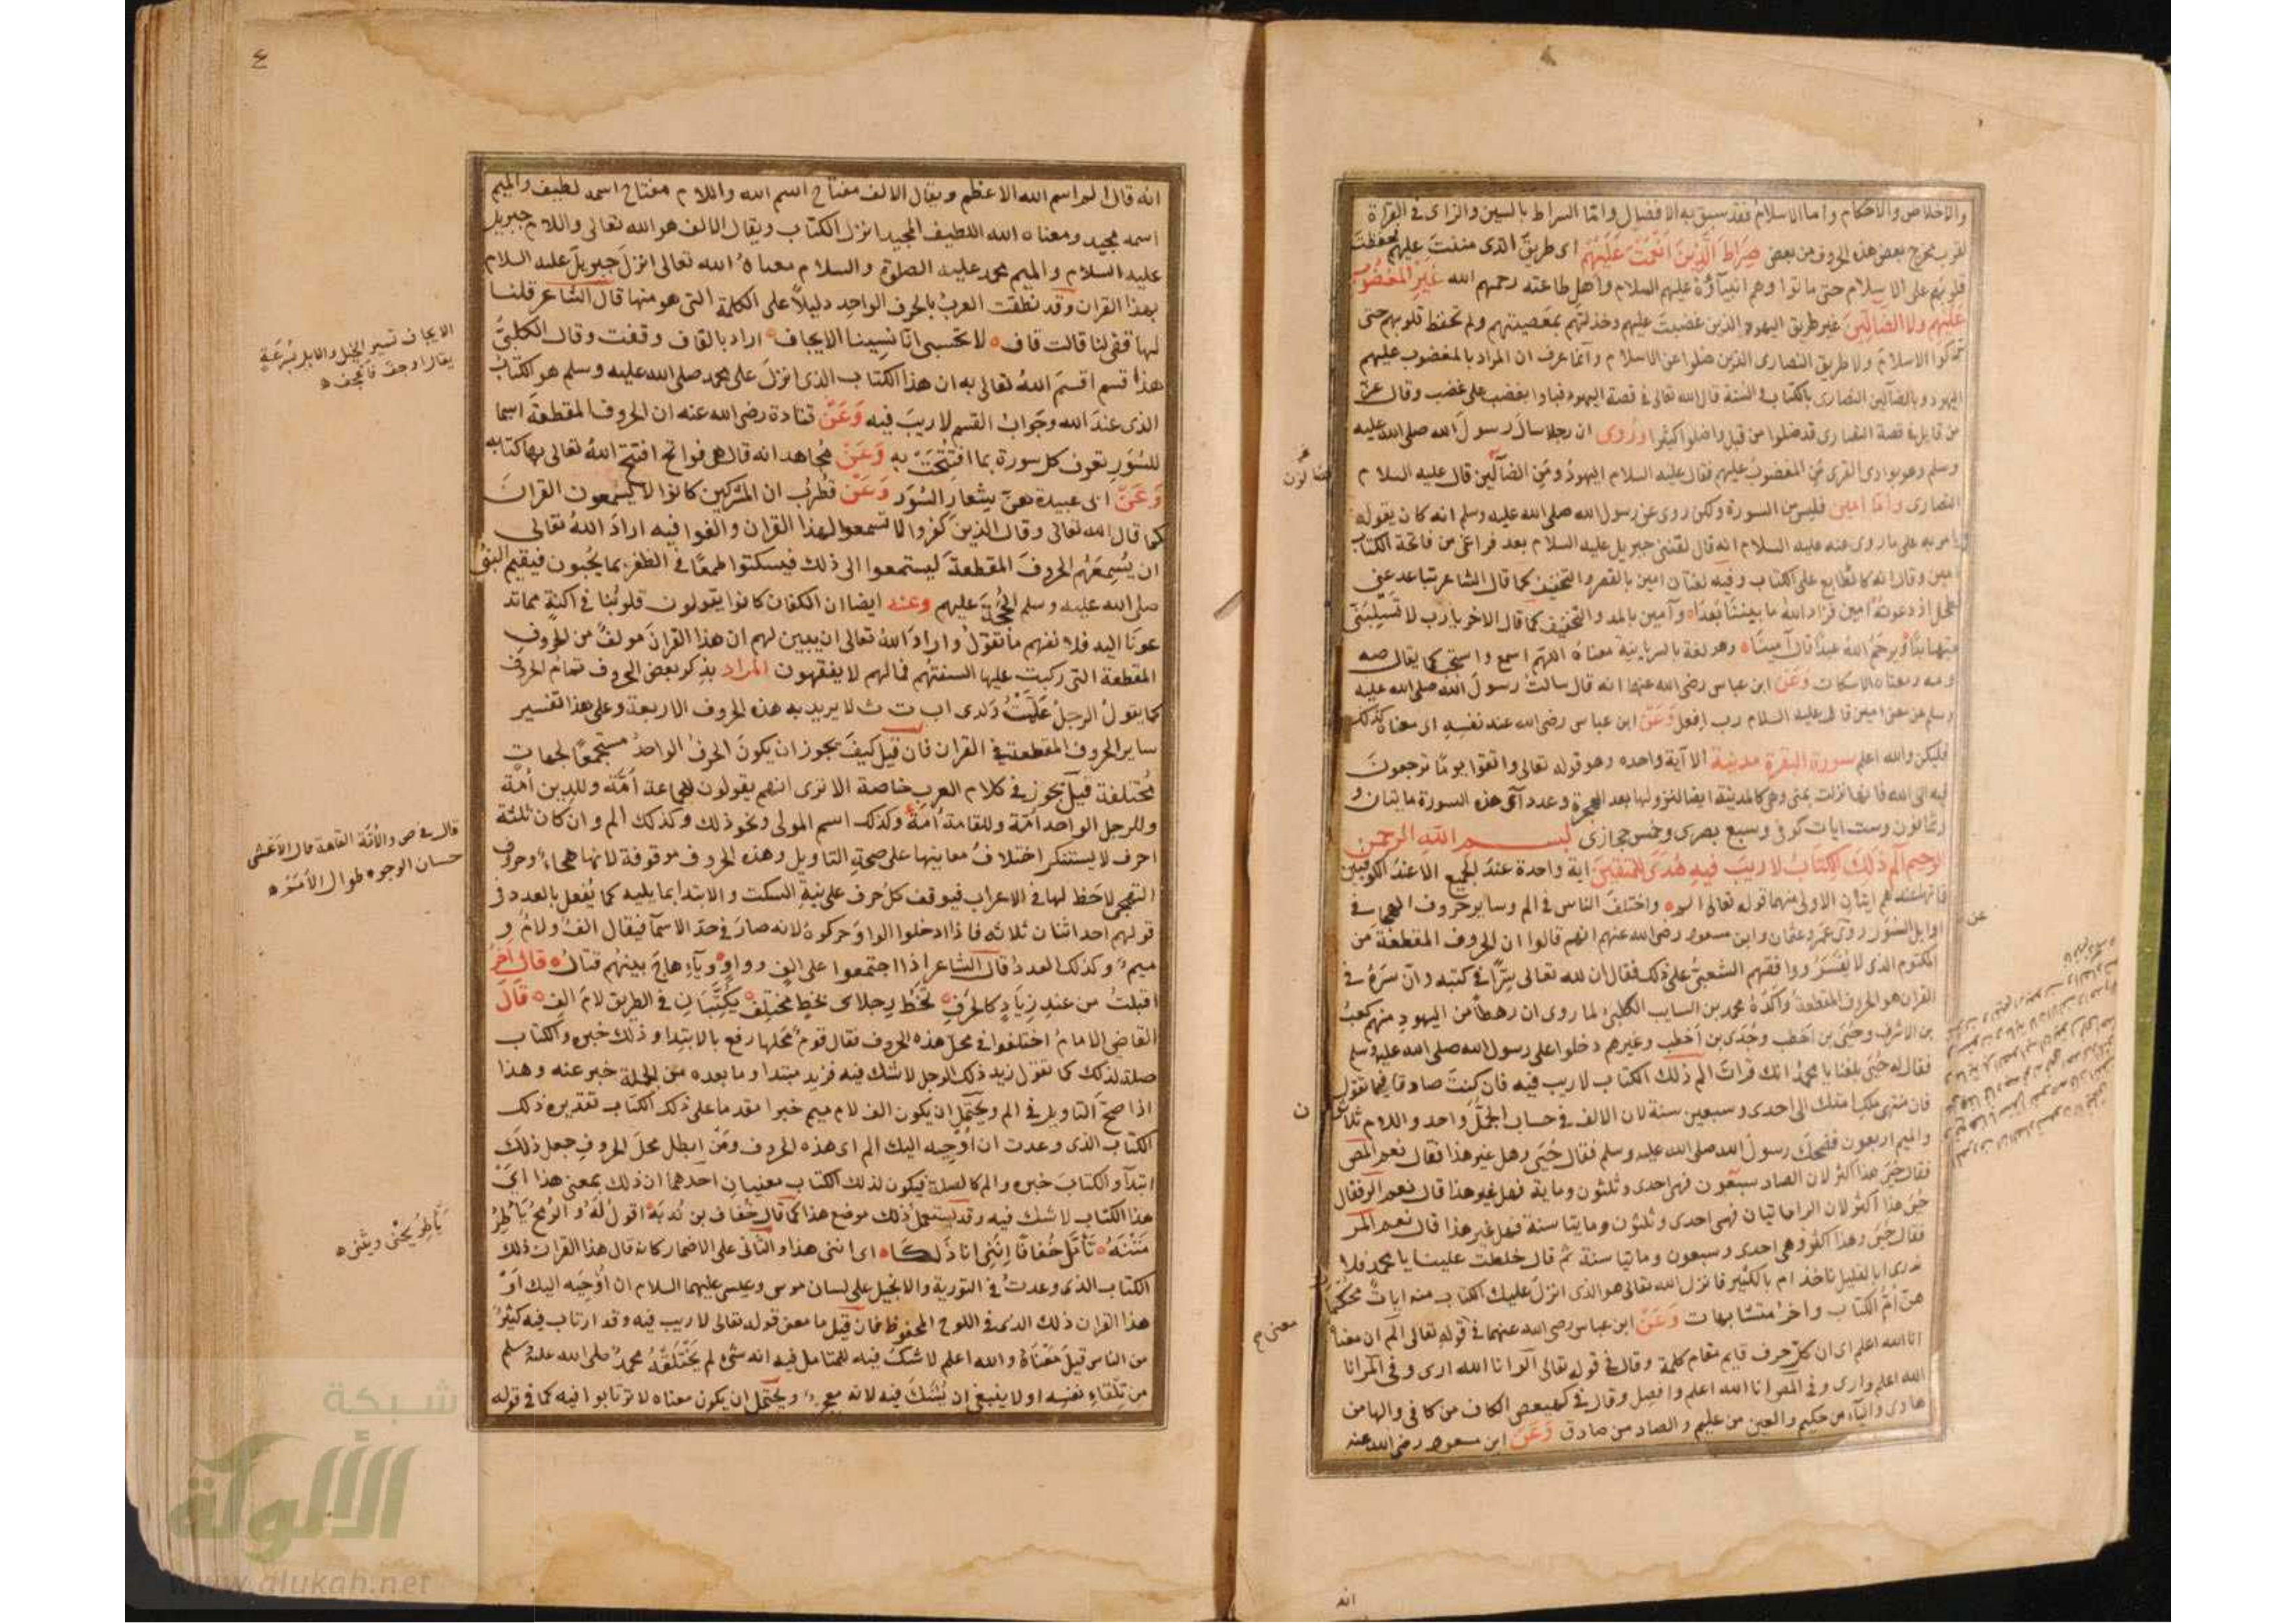 والاخلاص والاحكام واما الاسلام فقد سبق به الافضال وامّا السراط بالسين والزاى فى القراة
لقرب مخرج بعض هذه الحروف من بعض صِرَاطَ الَّذِينَ اَنْعَمْتَ عَلَيْهِمْ اى طريق الذى مننتَ عليهم فحفظتَ
قلوبهم على الاسلام حتى ماتوا وهم انبيآؤهُ عليهم السلام واهل طاعته رحمهم الله غَيْرِ المَغْضُوبِ
عَلَيْهِم ولا الضَالِّينَ غير طريق اليهود الذين غضبتَ عليهم وخذلتهم بمعصيتهم ولم تحفظ قلوبهم حتى
تركوا الاسلامَ ولا طريق النصارى الذين ضلوا عن الاسلام وانما عرف ان المراد بالمغضوب عليهم
اليهود وبالضآلين النصارى بالكتاب والسنة قال الله تعالى فى قصة اليهود فباوا بغضب على غضب وقال عزّ
من قايل فى قصة النصارى قد ضلوا من قبل واضلوا كثيرا ورُوى ان رجلا سال رسولَ الله صلى الله عليه
وسلم وهو بوادى القرى مَن المغضوبُ عليهم فقال عليه السلام اليهودُ ومَن الضآلّين قال عليه السلام
النصارى وامّا امين فليس من السورة ولكن روى عن رسول الله صلى الله عليه وسلم انه كان يقوله
ويامر به على ما روى عنه عليه السلام انه قال لقننى جبريل عليه السلام بعد فراغى من فاتحة الكتاب
امين وقال انه كالطابع على الكتاب وفيه لغتان امين بالقصر والتخفيف كما قال الشاعر تباعد عنى
فطحل اذ دعوتهُ امين فزاد اللهُ ما بيننا بُعدَاه وآمين بالمد والتخفيف كما قال الاخر يا رب لا تسلبَنّى
حبّها ابدًا ويرحَمُ اللهُ عبدًا قال آمينَا ه وهو لغة بالسريانية معناهُ اللهمّ اسمع واستجب كما يقال صه
ومه ومعناه الاسكات وَعَنْ ابن عباس رضى الله عنهما انه قال سالتُ رسولَ الله صلى الله عليه
وسلم عن معنى امين قال عليه السلام رب افعل وَعَنْ ابن عباس رضى الله عنه نفسِه اى معناه كذلك
فليكن والله اعلم سورة البقرة مدنية الا آية واحده وهو قوله تعالى واتقوا يومًا ترجعونَ
فيه الى الله فانها نزلت بمنى وهى كالمدنية ايضا لنزولها بعد الهجرة وعدد آى هذه السورة مايتان و
وثمانون وست ايات كوفى وسبع بصرى وخمس حجازى بسم الله الرحمن
الرحيم الٓم ذَلِكَ الكِتَابُ لَا رَيْبَ فِيهِ هُدًى لِلْمُتَّقِينَ اية واحدة عندَ الجميع الا عندَ الكوفيين
فانها عندهم ايتان الاولى منهما قوله تعالى الٓم ه واختلفَ الناس فى الم وساير حروف الهجا فى
اوايل السُوَر روى عمر وعثمان وابن مسعود رضى الله عنهم انهم قالوا ان الحروف المقطعة من
المكتوم الذى لا يُفَسَّرُ ووافقهم الشعبىُّ على ذلك فقال ان لله تعالى سِرًّا فى كتبه وانّ سَرَّهُ فى
القران هو الحروف المقطعة واكَّدَهُ محمد بن السايب الكلبىُّ لما روى ان رهطاً من اليهود منهم كعبُ
بن الاشرف وحُيَىّ بن اخطب وجُدَى بن اَخطب وغيرهم دخلوا على رسول الله صلى الله عليه وسلم
فقال له حُيَى بلغنا يا محمدُ انك قراتَ الم ذلك الكتاب لا ريب فيه فان كنتَ صادقا فيما تقول
فان منتهى ملك امتك الى احدى وسبعين سنة لان الالف فى حساب الجمّل واحد واللام ثلاثون
والميم اربعون فضحك رسولُ الله صلى الله عليه وسلم فقال حُيَى وهل غير هذا فقال نعم المص
فقال حُيَىّ هذا اكثر لان الصاد سبعون فهى احدى وثلثون وماية فهل غير هذا قال نعم الر فقال
حُيَىّ هذا اكثر لان الرا مائتيان فهى احدى وثلثون ومايتا سنة فهل غير هذا قال نعم المر
فقال حُيَى وهذا اكثر وهى احدى وسبعون ومايتا سنة ثم قال خلطت علينا يا محمد فلا
ندرى ابالقليل ناخذ ام بالكثير فانزل الله تعالى هو الذى انزلَ عليك الكتاب منه اياتٌ محكمات
هنّ اُمُّ الكتاب واخرُ متشابهات وَعَنْ ابن عباس رضى الله عنهما فى قوله تعالى الم ان معناه
انا الله اعلم اى ان كل حرف قايم مقام كلمة وقال فى قوله تعالى الر انا الله ارى وفى المر انا
الله اعلم وارى وفى المص انا الله اعلم وافصِل وقال فى كهيعص الكاف من كافى والها من
هادى واليآء من حكيم والعين من عليم والصاد من صادق وَعَنْ ابن مسعود رضى الله عنه
ضالون
عن
معنى م
انه
٤
انه قال الم اسم الله الاعظم ويقال الالف مفتاح اسم الله واللام مفتاح اسمه لطيف والميم
اسمه مجيد ومعناه الله اللطيف المجيد انزل الكتاب ويقال الالف هو الله تعالى واللام جبريل
عليه السلام والميم محمد عليه الصلوة والسلام معناهُ الله تعالى انزلَ جبريلَ عليه السلام
بهذا القران وقد نطقت العربُ بالحرف الواحِدِ دليلاً على الكلمة التى هو منها قال الشاعر قلنا
لها قفى لنا قالت قاف ه لا تحسبى انّا نَسِينا الايجاف ه اراد بالقاف وقفت وقال الكلبىُّ
هذا قسم اقسَمَ اللهُ تعالى به ان هذا الكتاب الذى انزلَ على محمد صلى الله عليه وسلم هو الكتابُ
الذى عندَ الله وجَوابُ القسم لا ريبَ فيه وَعَنْ قتادة رضى الله عنه ان الحروف المقطعةَ اسما
للسُوَرِ تعرف كل سورة بما افتُتِحَتْ به وَعَنْ مُجاهد انه قال هى فواتح افتتح اللهُ تعالى بها كتابه
وَعَنْ ابى عبيدة هىَ شِعَارِ السُوَر وَعَنْ قُطرُب ان المشركين كانوا لا يَسْمعون القرانَ
كما قال الله تعالى وقال الذين كفروا لا تسمعوا لهذا القران والغوا فيه ارادَ اللهُ تعالى
ان يُسْمِعَهُم الحروفَ المقطعةَ ليستمعوا الى ذلك فيسكتوا طمعًا فى الظفر بما يُحبون فيقيم النبىُّ
صلى الله عليه وسلم الحُجَّةَ عليهم وعنه ايضا ان الكفار كانوا يقولون قلوبُنا فى اكنةٍ مما تد
عونَا اليه فلا نفهم ما تقولُ وارادَ اللهُ تعالى ان يبين لهم ان هذا القرانَ مولفٌ من الحروف
المقطعة التى ركبت عليها السنتهُم فمالهم لا يفقهون المراد بذكر بعض الحروف تمام الحروف
كما يقولُ الرجلُ عَلَّمْتُ وَلدى اب ت ث لا يريد به هذه الحروف الاربعة وعلى هذا تفسير
ساير الحروف المقطعة فى القران فان قيل كيفَ يجوز ان يكونَ الحرفُ الواحدُ مستجمعًا لجهاتٍ
مُختلفة قيل يجوز فى كلام العرب خاصة الا ترى انهم يقولون للجماعة اُمَّة وللدين اُمّة
وللرجل الواحد اُمّة وللقامة اُمّة وكذلك اسم المولى ونحو ذلك وكذلك الم وان كان ثلثة
احرف لا يستنكر اختلافُ معانيها على صحةِ التاويل وهذه الحروف موقوفة لانها هجاءٌ وحروف
التهجى لا حَظ لها فى الاعراب فيوقف كلُ حرف على نيةِ السكت والابتدا بما يليه كما يُفعل بالعدد فى
قولهم احد اثنان ثلاثه فاذا ادخلوا الواوَ حركوهُ لانه صارَ فى حدّ الاسمآ فيقال الفٌ ولامٌ و
ميمٌ وكذلك العددُ قال الشاعر اِذا اجتمعوا على الفٍ وواوٍ ه وياءٍ هاجَ بينهُم قتالُ ه قال آخَرُ
اقبلتُ من عندِ زِيَادٍ كالخَرِف ه تَخُطُّ رِجلاى بخطٍ مختلِف ه يُكَتِّبَانِ فى الطريقِ لامَ الِف ه قَالَ
القاضى الامامُ اختلفوا فى محل هذه الحروف فقال قومٌ محَلها رفع بالابتدا وذلك خبره والكتاب
صلة لذلك كما تقول زيد ذلك الرجل لا شك فيه فزيد مبتدا وما بعده من الجملة خبر عنه وهذا
اذا صحّ التاويل فى الم ويَحتَمل ان يكون الف لام ميم خبرا مقدما على ذلك الكتاب تقديره ذلك
الكتاب الذى وعدت ان اُوحِيه اليك الم اى هذه الحروف ومَنْ ابطل محلَ الحروفِ جعل ذلكَ
ابتدآ والكتابَ خبره والم كالصلة فيكون لذلك الكتاب معنيانِ احدهما ان ذلك بمعنى هذا اىْ
هذا الكتاب لا شك فيه وقد يستعملُ ذلك موضع هذا كما قال خُفاف بن نُدبَة ه اقولُ لَهُ والرُمحُ يَأطِرُ
مَتْنَهُ ه تَأَمَّل خُفافًا اِنَّنِى انا ذَلِكَا ه اى اننى هذا والثانى على الاضمار كانه قال هذا القران ذلك
الكتاب الذى وعدتُ فى التورية والانجيل على لسان موسى وعيسى عليهما السلام ان اُوحِيَه اليك اَوْ
هذا القران ذلك الذى فى اللوح المحفوظ فان قيل ما معنى قوله تعالى لا ريب فيه وقد ارتاب فيه كثيرٌ
من الناس قيلَ مَعْنَاهُ والله اعلم لا شكّ فيه للمتامل فيه انه شىءٌ لم يَخْتَلِقْهُ محمدٌ صلى الله عليه وسلم
من تلقاءِ نفسِه او لا ينبغى ان يُشكّ فيه لانه معجزٌ ويَحتمل ان يكون معناه لا ترتابوا فيه كما فى قوله
الايجاف تسيير الخيل والابل بسُرعَةٍ
يقال اوجف فاعجف ه
قال فى ص والاُمّة القامة قال الاَعْشى
حسان الوجوه طوال الاُمَمْ ه
يَأطِرُ يحْنى ويثنى ه
شبكة
الألوكة
www.alukah.net